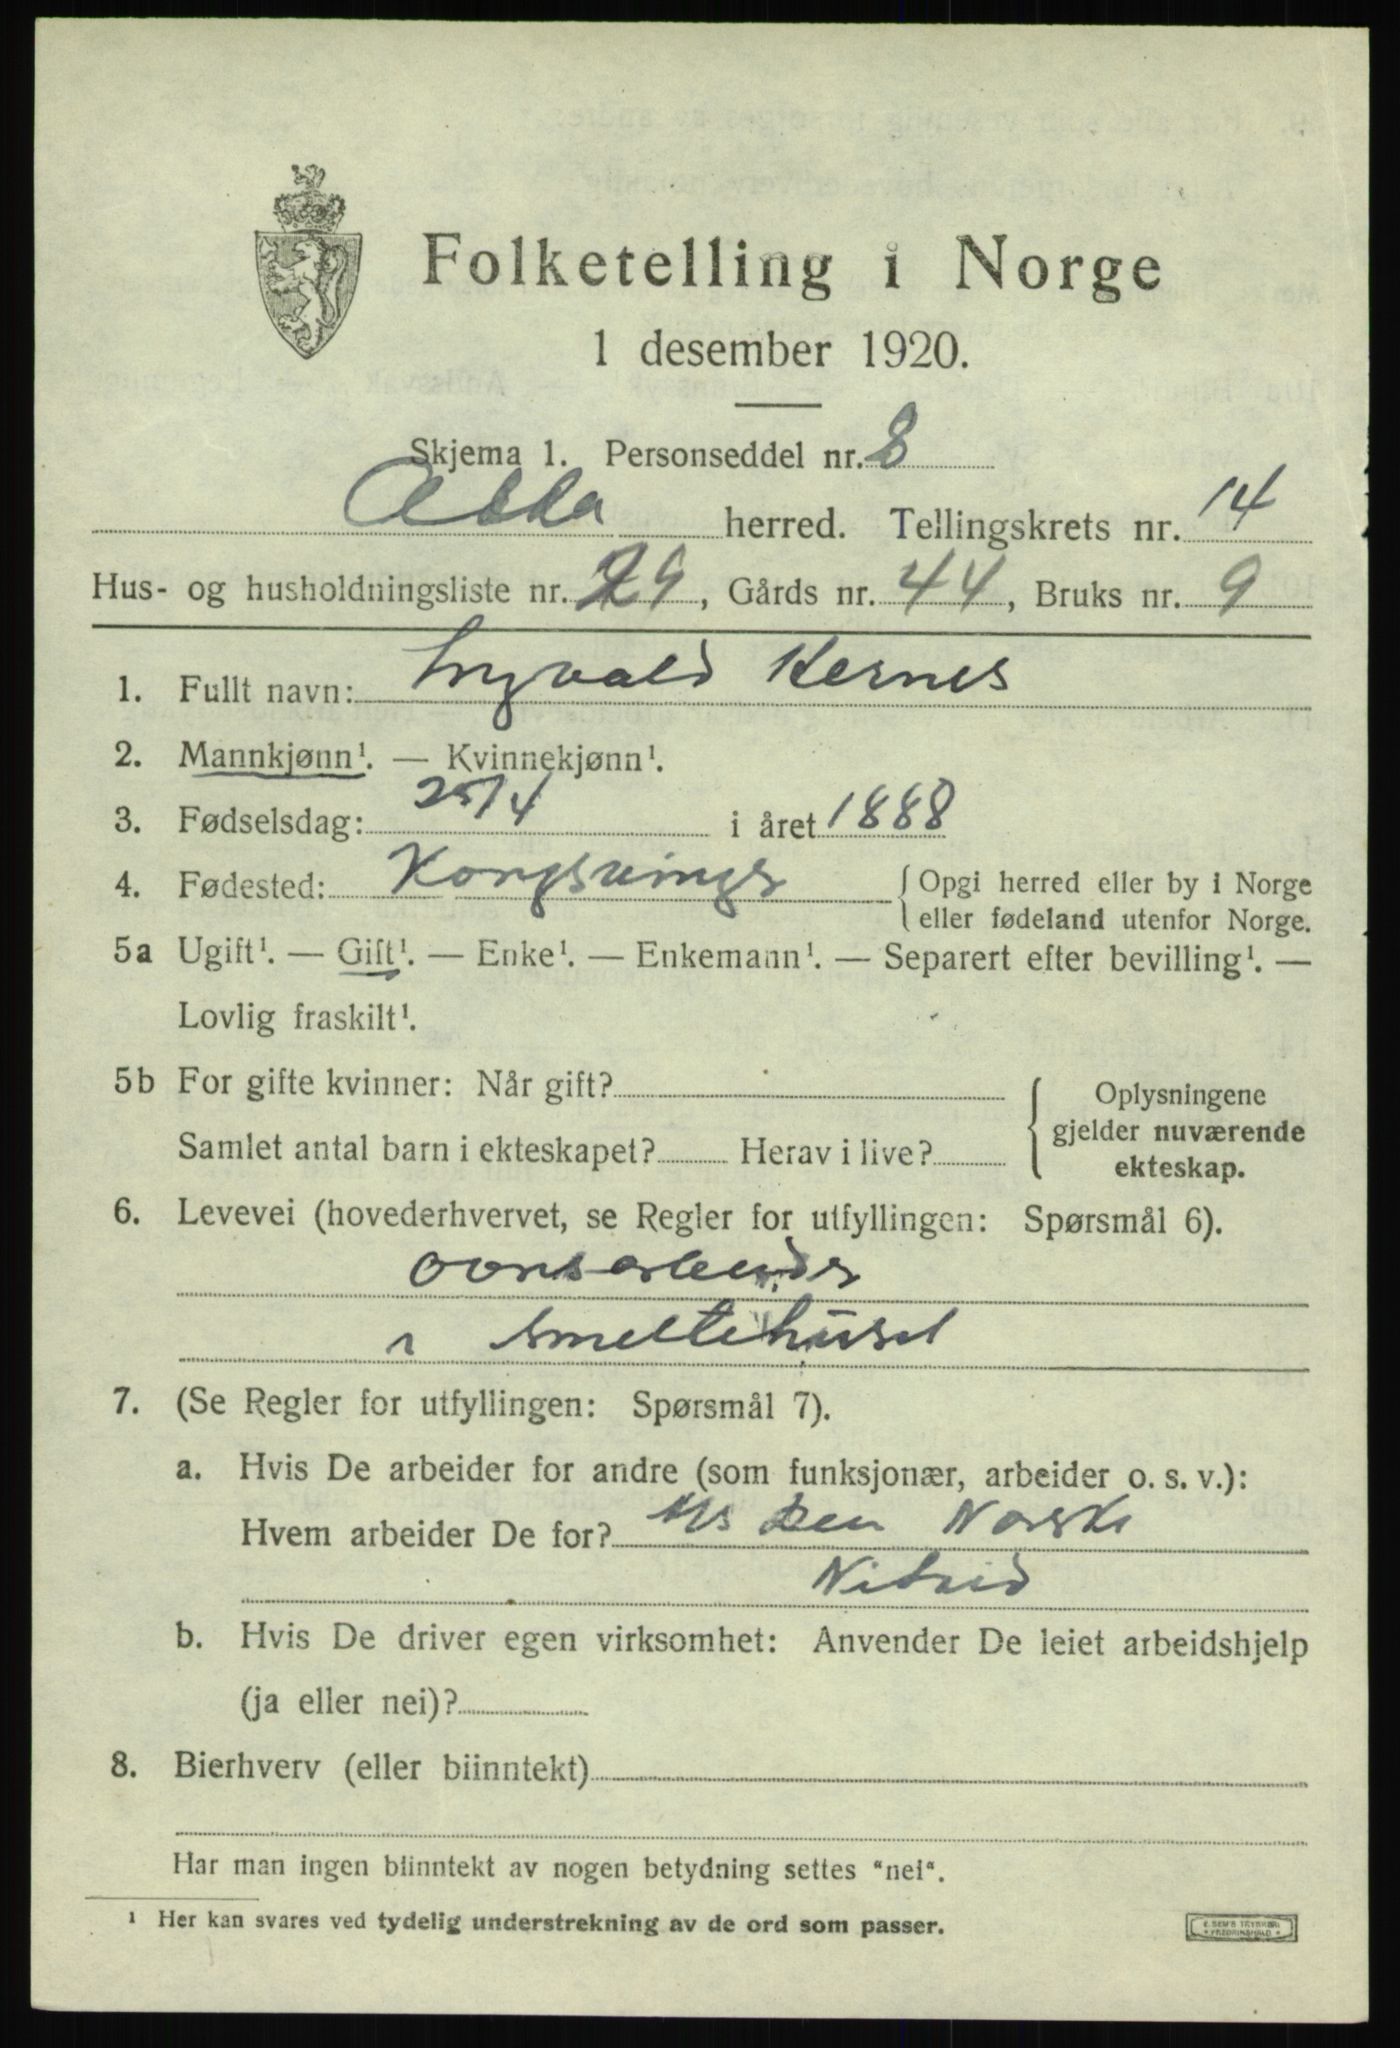 Folketelling i Norge
1 desember 1920.
Skjema 1. Personseddel nr. 8
Odda herred. Tellingskrets nr. 14
Hus- og husholdningsliste nr. 29, Gårds nr. 44, Bruks nr. 9
1. Fullt navn:
2. Mannkjønn¹. — Kvinnekjønn¹.
3. Fødselsdag: 25/4 i året 1888
4. Fødested: Kongsvinger { Opgi herred eller by i Norge
eller fødeland utenfor Norge.
5a Ugift¹. — Gift¹. — Enke¹. — Enkemann¹. — Separert efter bevilling¹. —
Lovlig fraskilt¹.
5b For gifte kvinner: Når gift?
Samlet antal barn i ekteskapet? Herav i live?
{ Oplysningene
gjelder nuværende
ekteskap.
6. Levevei (hovederhvervet, se Regler for utfyllingen: Spørsmål 6).
ovnsarbeider
i smeltehuset
7. (Se Regler for utfyllingen: Spørsmål 7).
a. Hvis De arbeider for andre (som funksjonær, arbeider o. s. v.):
Hvem arbeider De for? A/s Den Norske
Nitrid
b. Hvis De driver egen virksomhet: Anvender De leiet arbeidshjelp
(ja eller nei)?
8. Bierhverv (eller biinntekt)
Har man ingen biinntekt av nogen betydning settes "nei".
¹ Her kan svares ved tydelig understrekning av de ord som passer.
E. SEM'S TRYKKERI
FREDRIKSHALD